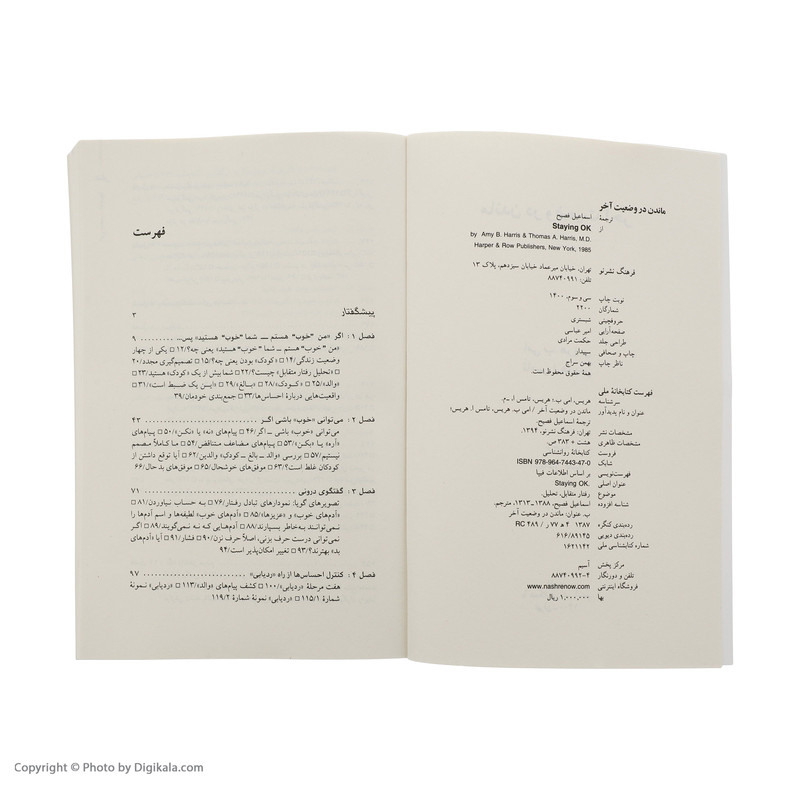 ماندن در وضعیت آخر
ترجمهٔ اسماعیل فصیح
از Staying OK
by Amy B. Harris & Thomas A. Harris, M.D.
Harper & Row Publishers, New York, 1985
فرهنگ نشرنو تهران، خیابان میرعماد خیابان سیزدهم، پلاک ۱۳
تلفن: ۸۸۷۴۰۹۹۱
نوبت چاپ سی و سوم، ۱۴۰۰
شمارگان ۲۲۰۰
حروفچینی شبستری
صفحه‌آرایی امیر عباسی
طراحی جلد حکمت مرادی
چاپ و صحافی سپیدار
ناظر چاپ بهمن سراج
همهٔ حقوق محفوظ است.
فهرست کتابخانهٔ ملی
سرشناسه هریس، امی ب؛ هریس، تامس ا.ـ م.
عنوان و نام پدیدآور ماندن در وضعیت آخر / امی ب. هریس، تامس ا. هریس؛
ترجمهٔ اسماعیل فصیح
مشخصات نشر تهران: فرهنگ نشرنو، ۱۳۹۴.
مشخصات ظاهری هشت + ۳۸۳ ص.
فروست کتابخانهٔ روانشناسی
شابک ISBN 978-964-7443-47-0
فهرست‌نویسی بر اساس اطلاعات فیپا
عنوان اصلی Staying OK.
موضوع رفتار متقابل، تحلیل.
شناسه افزوده اسماعیل فصیح، ۱۳۸۸ـ۱۳۱۳، مترجم.
ب. عنوان: ماندن در وضعیت آخر
رده‌بندی کنگره ۱۳۸۷ ۴ ه ۷۷ ر / RC ۴۸۹
رده‌بندی دیویی ۶۱۶/۸۹۱۴۵
شماره کتابشناسی ملی ۱۶۲۱۱۴۴
مرکز پخش آسیم
تلفن و دورنگار ۸۸۷۴۰۹۹۲-۴
فروشگاه اینترنتی www.nashrenow.com
بها ۱,۰۰۰,۰۰۰ ریال
فهرست
پیشگفتار ۳
فصل ۱: اگر «من "خوب" هستم ــ شما "خوب" هستید» پس... ......... ۹
«من "خوب" هستم ــ شما "خوب" هستید» یعنی چه؟/۱۲ □ یکی از چهار
وضعیت زندگی/۱۴ □ «کودک» بودن یعنی چه؟/۱۵ □ تصمیم‌گیری مجدد/۲۰
□ «تحلیل رفتار متقابل» چیست؟/۲۲ □ شما بیش از یک «کودک» هستید/۲۳ □
«والد»/۲۵ □ «کودک»/۲۸ □ «بالغ»/۲۹ □ «این یک ضبط است»/۳۱ □
واقعیت‌هایی دربارهٔ احساس‌ها/۳۳ □ جمع‌بندی خودمان/۳۹
فصل ۲: می‌توانی «خوب» باشی اگر ............................. ۴۳
می‌توانی «خوب» باشی ــ اگر/۴۶ □ پیام‌های «نه» یا «نکن»/۵۰ □ پیام‌های
«آره» یا «بکن»/۵۳ □ پیام‌های مضاعف متناقض/۵۴ □ ما کاملاً مصمم
نیستیم/۵۷ □ بررسی «والد ــ بالغ ــ کودکِ» والدین/۶۲ □ آیا توقع داشتن از
کودکان غلط است؟/۶۳ □ موفق‌های خوشحال/۶۵ □ موفق‌های بدحال/۶۶
فصل ۳: گفتگوی درونی ................................ ۷۱
تصویرهای گویا: نمودارهای تبادل رفتار/۷۶ □ به حساب نیاوردن/۸۱ □
«آدم‌های خوب» و «عزیزها»/۸۵ □ آدم‌های خوب لطیفه‌ها و اسم آدم‌ها را
نمی‌توانند به‌خاطر بسپارند/۸۸ □ آدم‌هایی که نه نمی‌گویند/۸۹ □ اگر
نمی‌توانی درست حرف بزنی، اصلاً حرف نزن/۹۰ □ فشار/۹۱ □ آیا «آدم‌های
بد» بهترند؟/۹۳ □ تغییر امکان‌پذیر است/۹۴
فصل ۴: کنترل احساس‌ها از راه «ردیابی» ....................... ۹۷
هفت مرحلهٔ «ردیابی»/۱۰۰ □ کشف پیام‌های «والد»/۱۱۳ □ «ردیابی» نمونهٔ
شمارهٔ ۱۱۵/۱ □ «ردیابی» نمونهٔ شمارهٔ ۱۱۹/۲
Copyright © Photo by Digikala.com